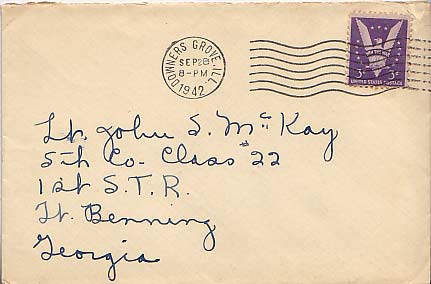 DOWNERS GROVE, ILL.
SEP 28
8-PM
1942
WIN THE WAR
3¢ 3¢
UNITED STATES POSTAGE
Lt. John S. McKay
5th Co- Class 22
1st S. T. R.
Ft. Benning
Georgia